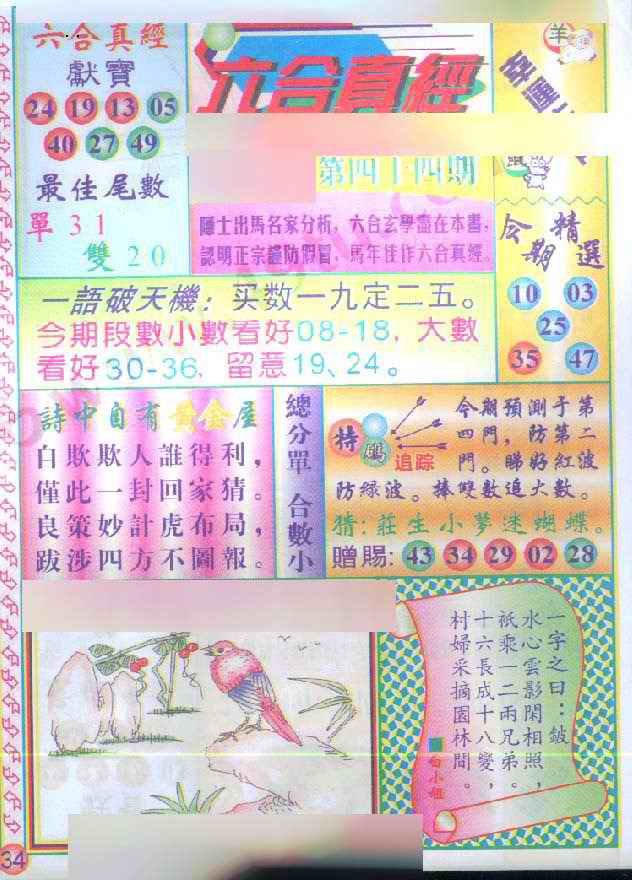 六合真經
獻寶
24 19 13 05
40 27 49
最佳尾數
單31
雙20
六合真經
第四十四期
隱士出馬名家分析，六合玄學盡在本書，
認明正宗謹防假冒，馬年佳作六合真經。
羊
今期精選
10 03
25
35 47
一語破天機：买数一九定二五。
今期段數小數看好08-18，大數
看好30-36，留意19、24。
詩中自有黃金屋
自欺欺人誰得利，
僅此一封回家猜。
良策妙計虎布局，
跋涉四方不圖報。
總分單 合數小
特碼
追踪
今期預測于第
四門，防第二
門。睇好紅波
防綠波。捧雙數追大數。
猜：莊生小夢迷蝴蝶。
贈賜：43 34 29 02 28
一字之曰：鈸
水心雲影閑相照，
祇乘一二兩兄弟。
十六長成十八變，
村婦采摘園林間。
白小姐
34